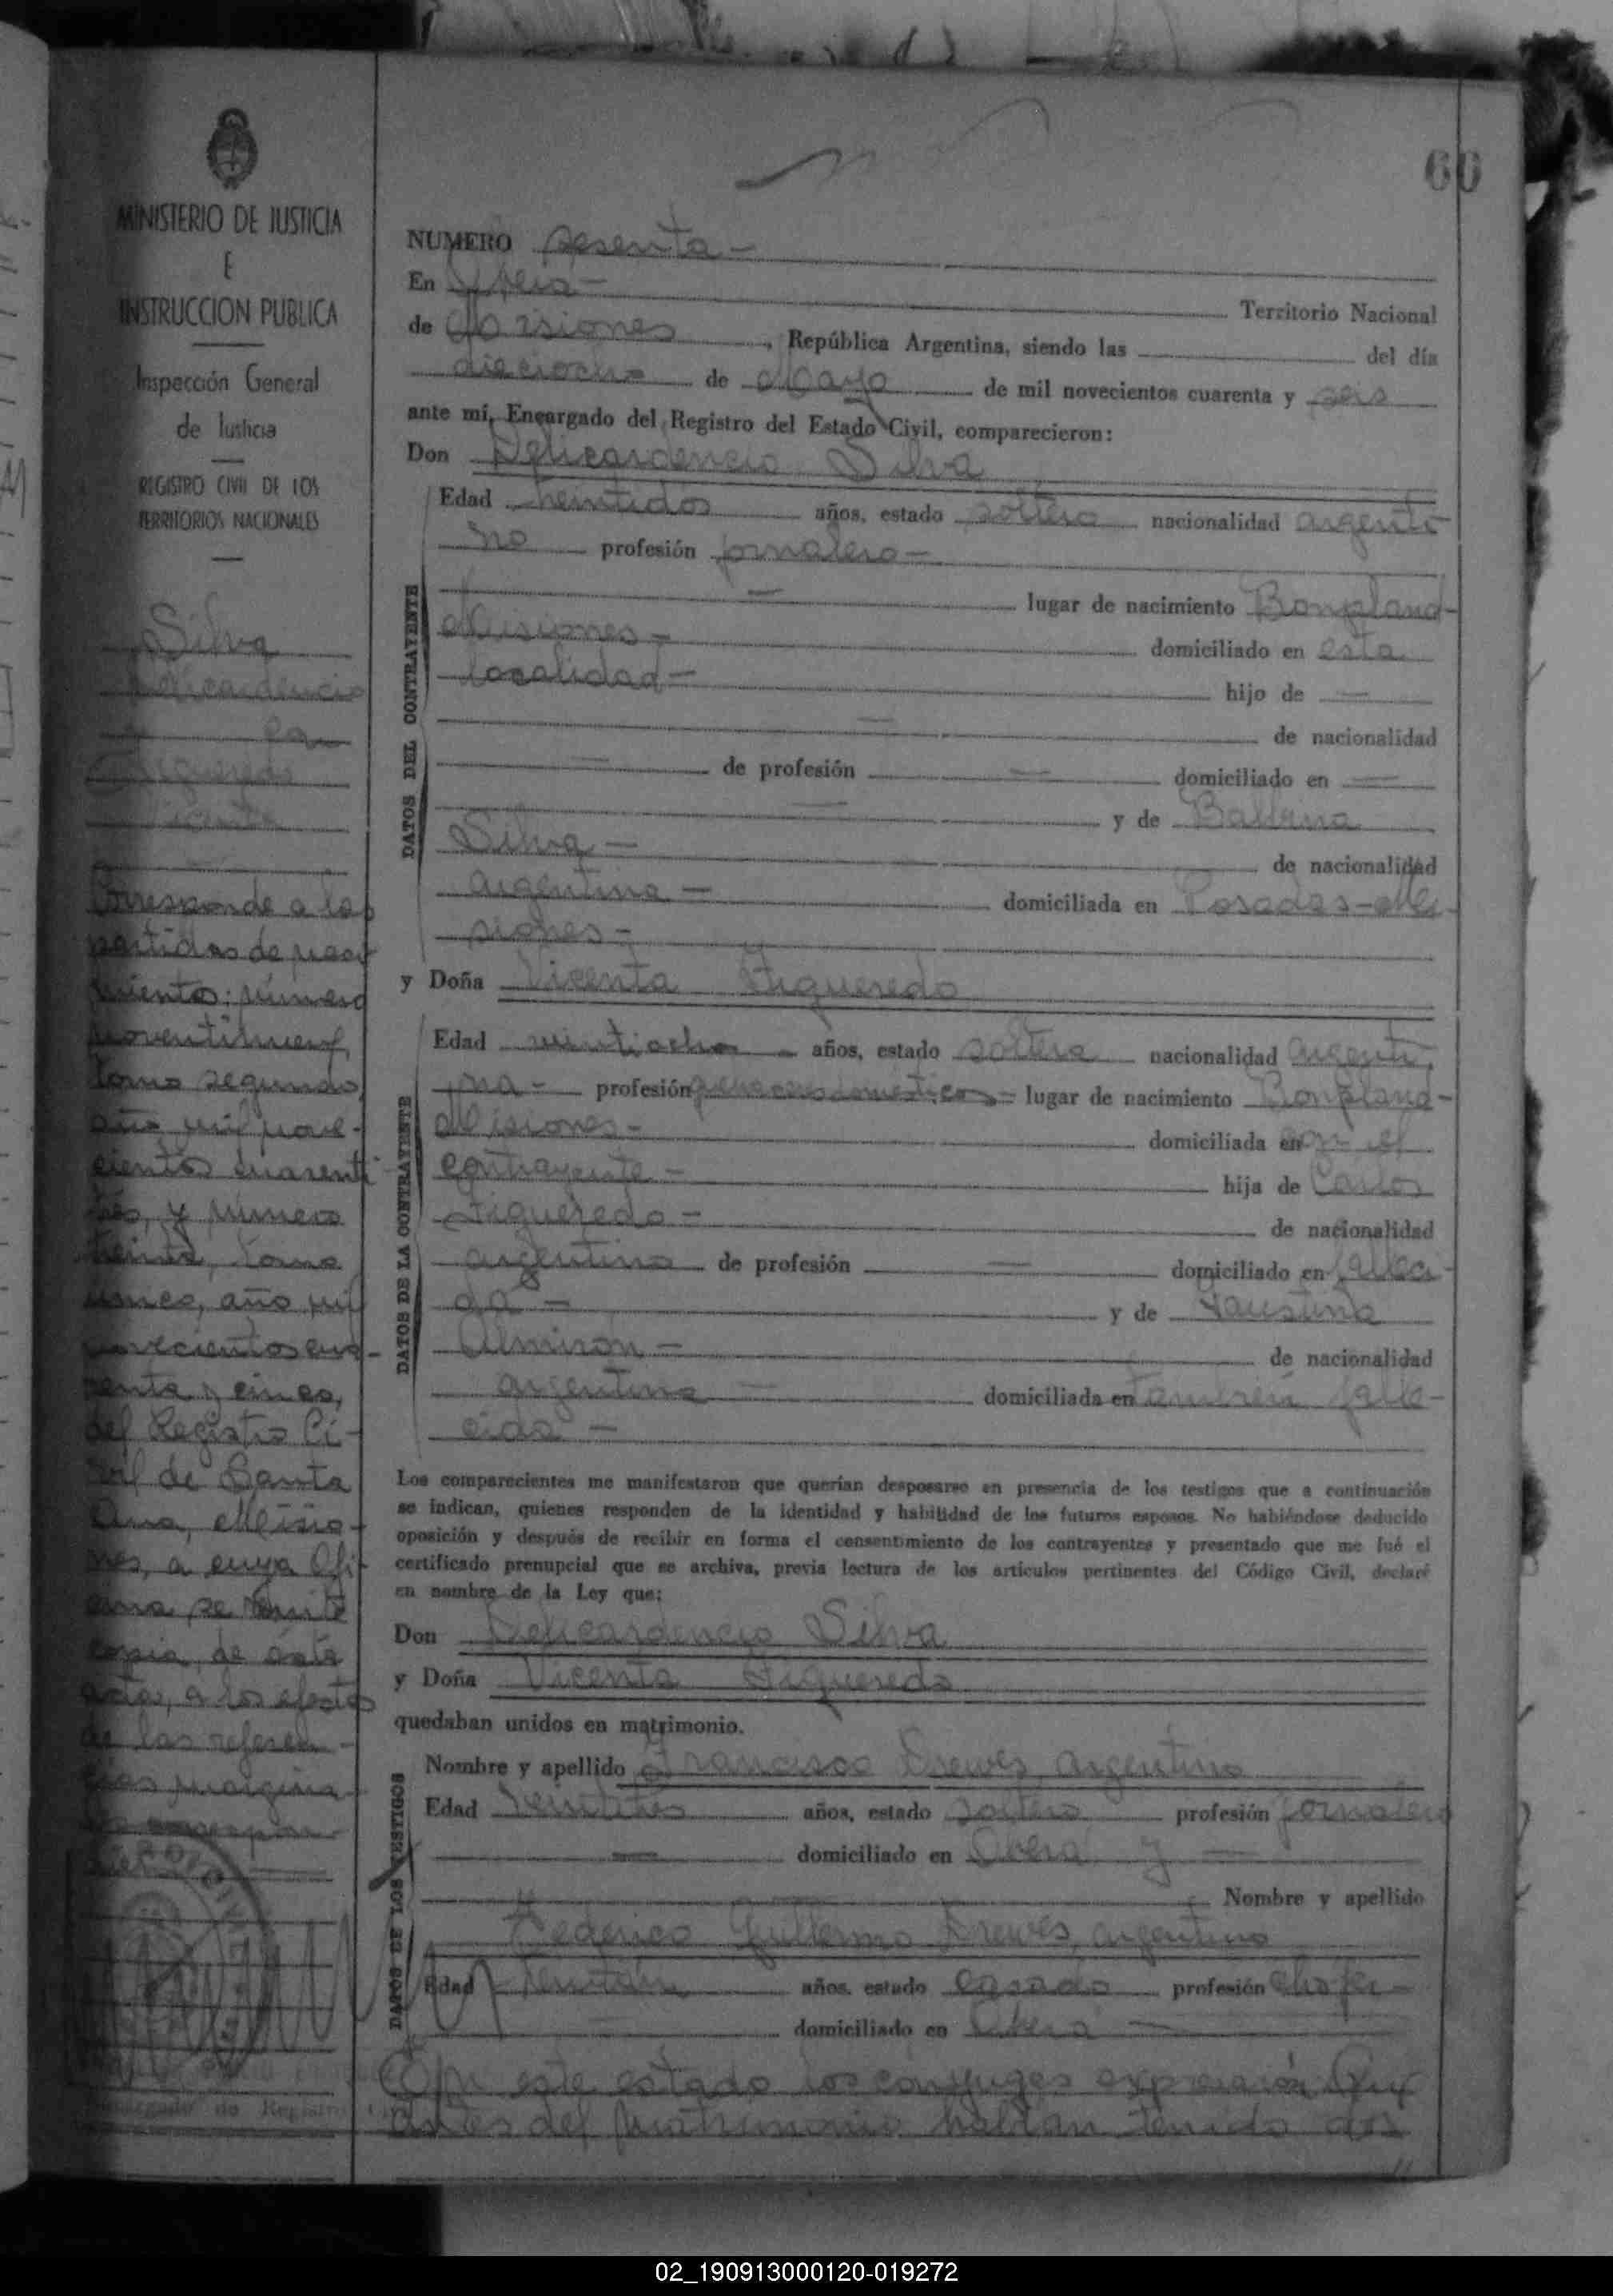 66
MINISTERIO DE JUSTICIA
E
INSTRUCCION PUBLICA
Inspección General
de Justicia
REGISTRO CIVIL DE LOS
TERRITORIOS NACIONALES
Silva
con
Figueredo
Vicenta
Corresponde a las
partidas de naci
miento: número
noventinueve,
tomo segundo,
año mil nove-
cientos cuarenti
trés, y número
treinta, tomo
único, año mil
novecientos cua-
renta y cinco,
del Registro Ci-
vil de Santa
Ana, Misio-
nes, a cuya Ofi-
cina se remite
copia, de ésta
acta, a los efectos
de las referen-
cias margina-
NUMERO sesenta -
En Oberá - Territorio Nacional
de Misiones, República Argentina, siendo las del día
dieciocho de Mayo de mil novecientos cuarenta y seis
ante mí, Encargado del Registro del Estado Civil, comparecieron:
Don Delicardencio Silva
DATOS DEL CONTRAYENTE
Edad años, estado soltero nacionalidad argenti
no profesión jornalero -
lugar de nacimiento Bonpland-
Misiones - domiciliado en esta
localidad - hijo de —
— de nacionalidad
— de profesión — domiciliado en —
— y de Balbina
Silva - de nacionalidad
argentina - domiciliada en Posadas - Mi
siones -
y Doña Vicenta Figueredo
DATOS DE LA CONTRAYENTE
Edad veintiocho - años, estado soltera nacionalidad argenti
na - profesión quehaceres domesticos - lugar de nacimiento Bonpland -
Misiones - domiciliada en con el
contrayente - hija de Carlos
Figueredo - de nacionalidad
argentino de profesión — domiciliado en falleci-
do - y de Faustina
Almirón - de nacionalidad
argentina - domiciliada en también falle-
cida -
Los comparecientes me manifestaron que querían desposarse en presencia de los testigos que a continuación
se indican, quienes responden de la identidad y habilidad de los futuros esposos. No habiéndose deducido
oposición y después de recibir en forma el consentimiento de los contrayentes y presentado que me fué el
certificado prenupcial que se archiva, previa lectura de los artículos pertinentes del Código Civil, declaré
en nombre de la Ley que:
Don Delicardencio Silva
y Doña Vicenta Figueredo
quedaban unidos en matrimonio.
DATOS DE LOS TESTIGOS
Nombre y apellido Francisco Drewes, argentino
Edad años, estado soltero profesión jornalero
— domiciliado en Oberá y —
— Nombre y apellido
Federico Guillermo Drewes, argentino
Edad años, estado casado profesión chofer -
— domiciliado en Oberá —
En este estado los cónyuges expresarón Que
antes del matrimonio habían tenido dos
Encargado de Registro
02_190913000120-019272